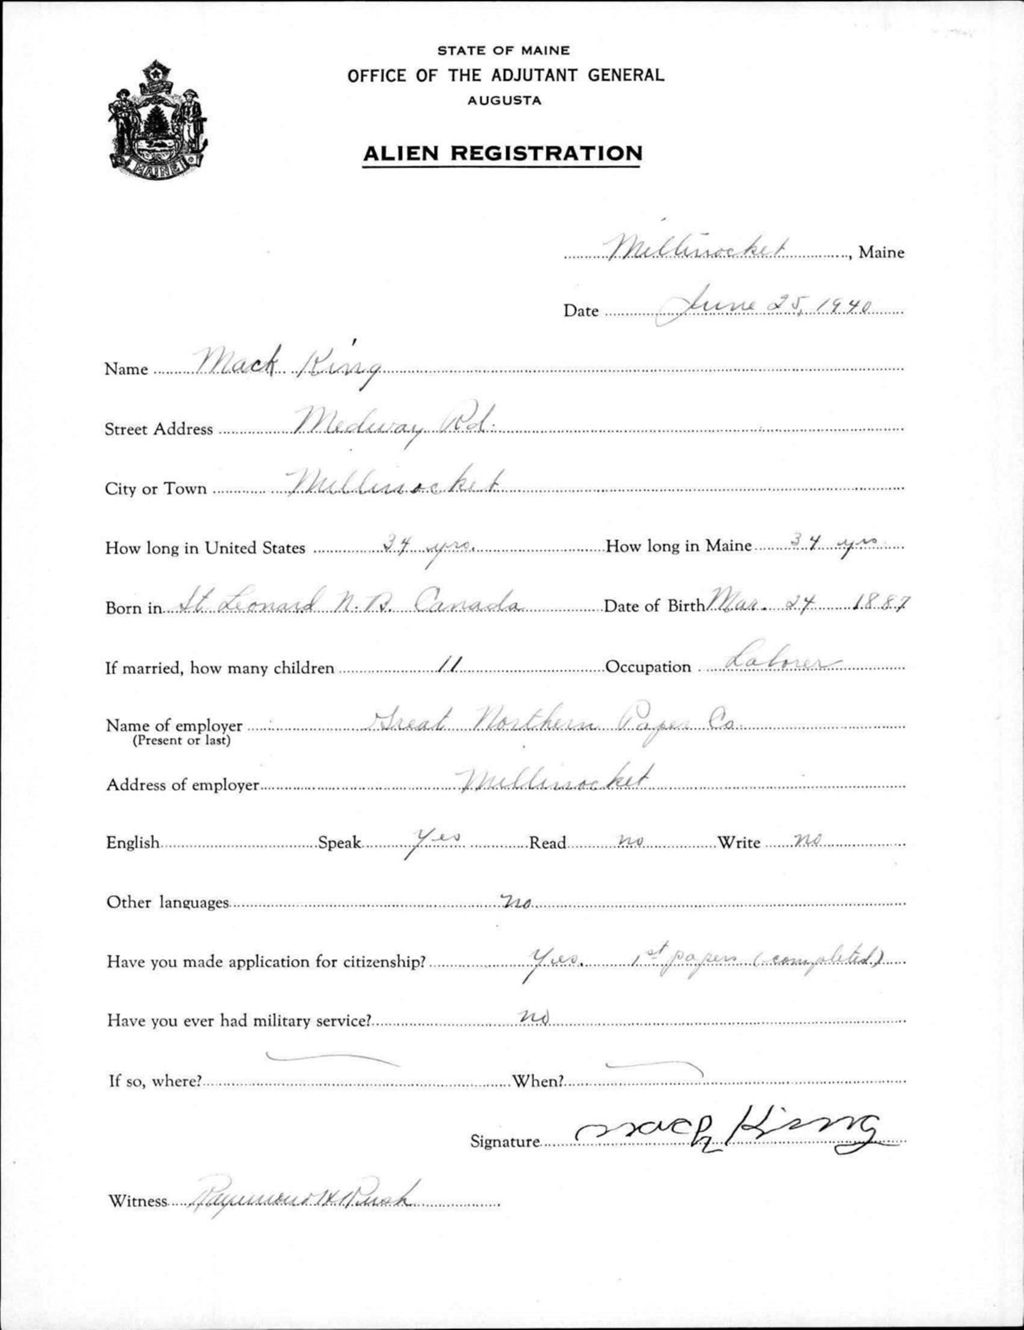 STATE OF MAINE
OFFICE OF THE ADJUTANT GENERAL
AUGUSTA
ALIEN REGISTRATION
MAINE
Millinocket, Maine
Date June 25, 1940
Name Mack King
Street Address Medway Rd.
City or Town Millinocket
How long in United States 34 yrs. How long in Maine 34 yrs
Born in St Leonard N.B. Canada Date of Birth Mar. 24 1887
If married, how many children 11 Occupation Laborer
Name of employer Great Northern Paper Co.
(Present or last)
Address of employer Millinocket
English Speak Yes Read no Write no
Other languages no
Have you made application for citizenship? Yes. 1st papers (completed)
Have you ever had military service? no
If so, where? When?
Signature Mack King
Witness Raymond H Rush